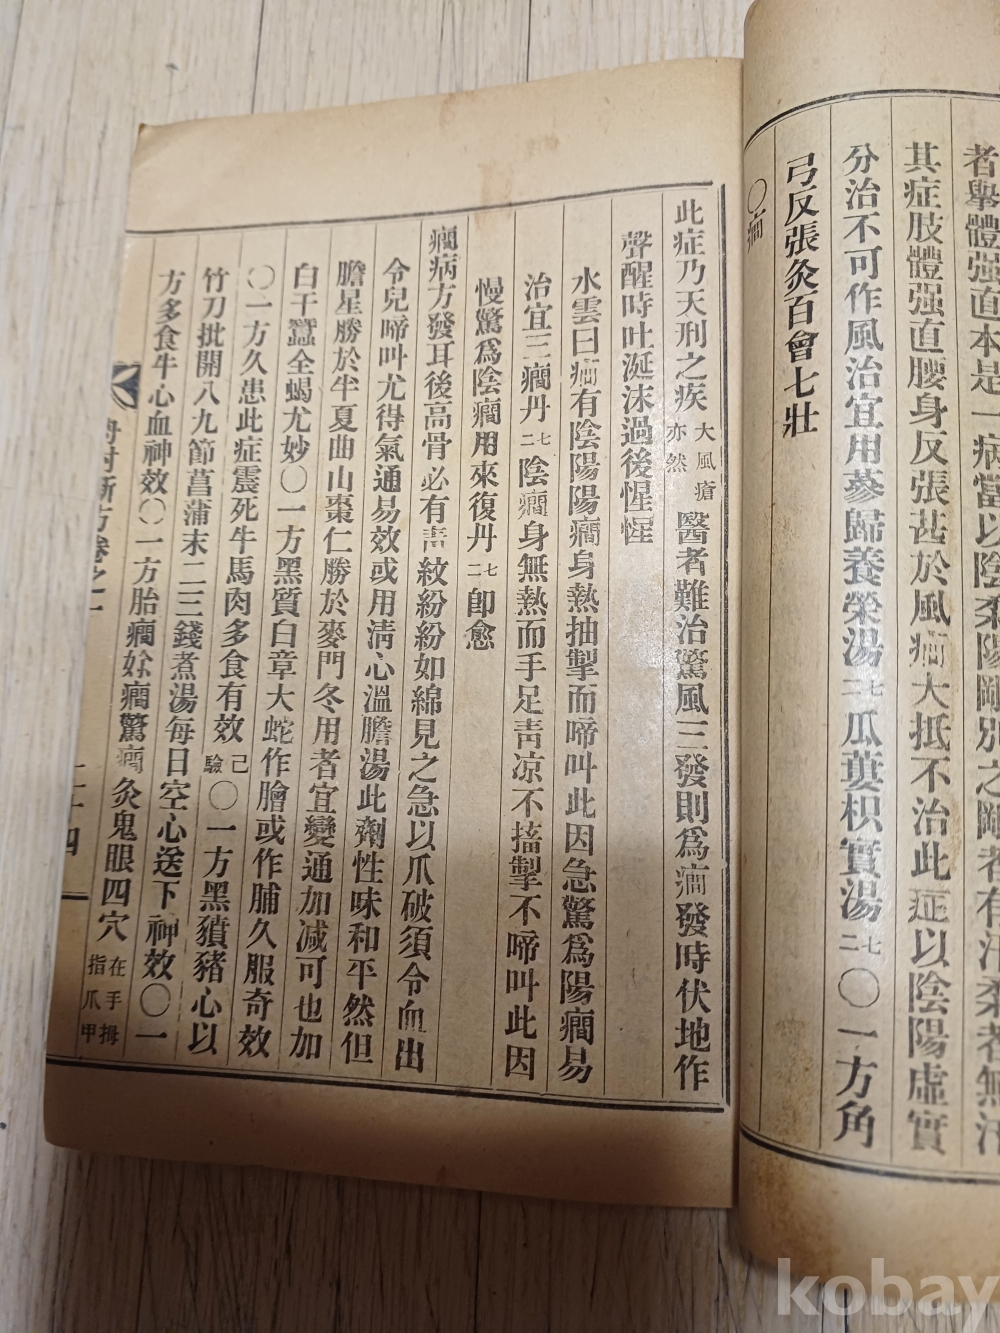 其症肢體强直腰身反張甚於風癎大抵不治此症以陰陽虛實
分治不可作風治宜用蔘歸養榮湯二七瓜蔞枳實湯二七〇一方角
弓反張灸百會七壯
〇癎
此症乃天刑之疾大風瘡亦然醫者難治驚風三發則爲癎發時伏地作
聲醒時吐涎沫過後惺惺
水雲曰癎有陰陽陽癎身熱抽掣而啼叫此因急驚爲陽癎易
治宜三癎丹二七陰癎身無熱而手足靑凉不搐掣不啼叫此因
慢驚爲陰癎用來復丹二七卽愈
癎病方發耳後高骨必有靑紋紛紛如綿見之急以爪破須令血出
令兒啼叫尤得氣通易效或用淸心溫膽湯此劑性味和平然但
膽星勝於半夏曲山棗仁勝於麥門冬用者宜變通加减可也加
白干蠶全蝎尤妙〇一方黑質白章大蛇作膾或作脯久服奇效
〇一方久患此症震死牛馬肉多食有效己驗〇一方黑豶豬心以
竹刀批開八九節菖蒲末二三錢煮湯每日空心送下神效〇一
方多食牛心血神效〇一方胎癎妳癎驚癎灸鬼眼四穴在手拇指爪甲
方卷之一
二十四
kobay